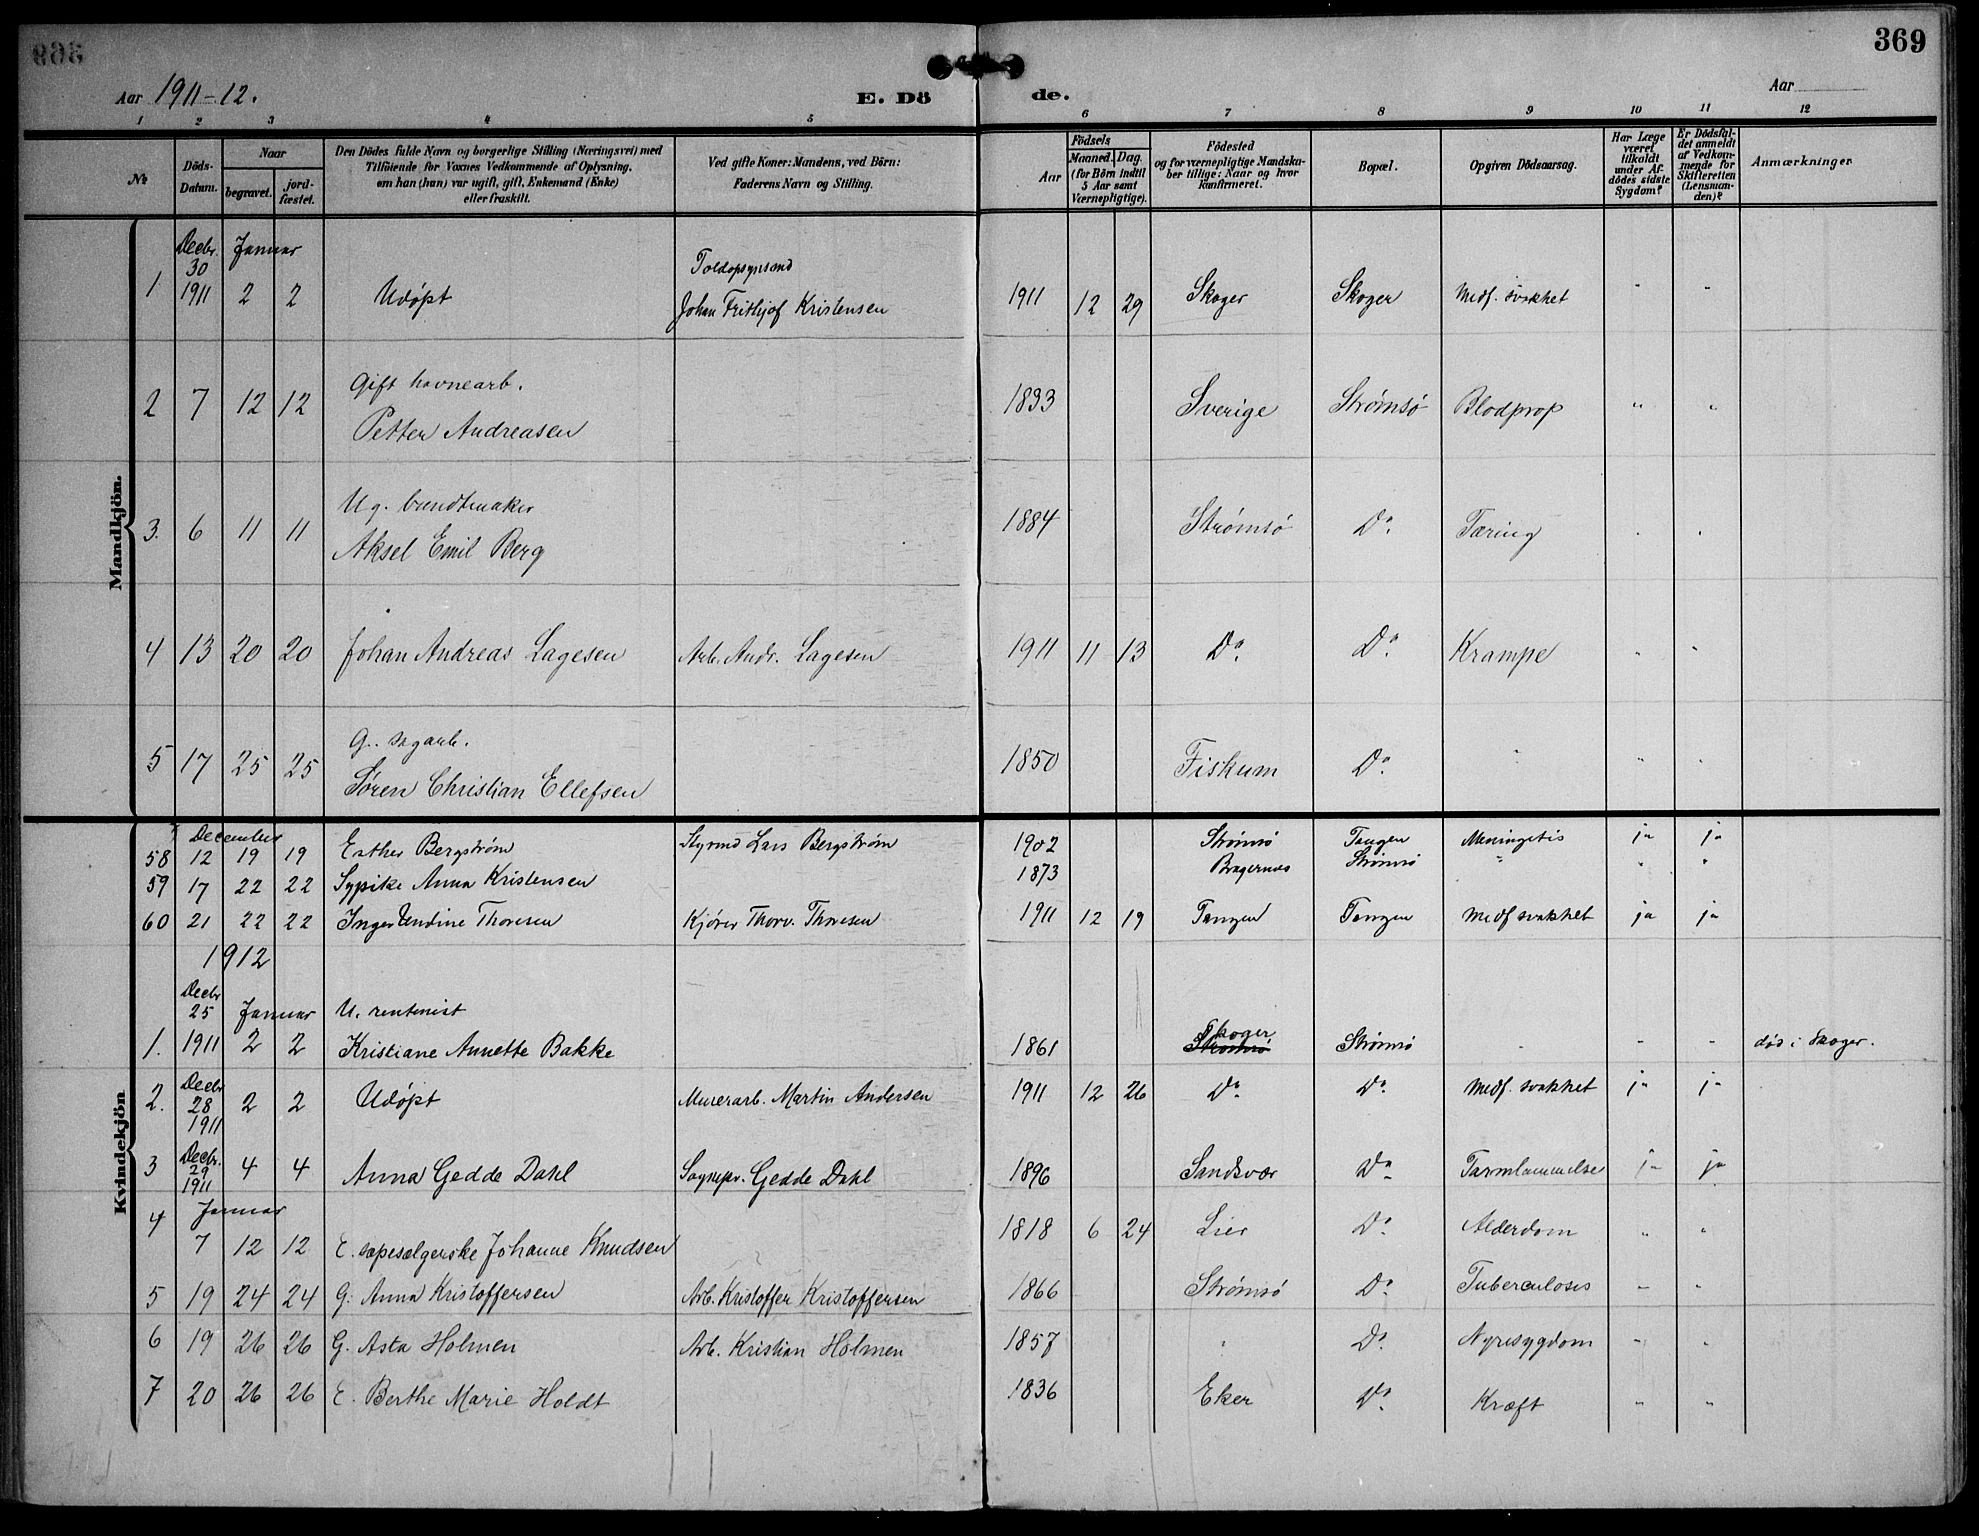 369
Aar 1911-12.
E. Dö
de.
Aar
1 2 3 4 5 6 7 8 9 10 11 12
No
Döds-Datum.
Naar
begravet.
jord-fæstet.
Den Dödes fulde Navn og borgerlige Stilling (Næringsvei) med
Tilföiende for Voxnes Vedkommende af Oplysning,
om han (hun) var ugift, gift, Enkemand (Enke)
eller fraskilt.
Ved gifte Koner: Mandens, ved Börn:
Faderens Navn og Stilling.
Födsels
Aar
Maaned. Dag.
(for Börn indtil
5 Aar samt
Værnepligtige).
Födested
og for værnepligtige Mandska-
ber tillige: Naar og hvor
Konfirmeret.
Bopæl.
Opgiven Dödsaarsag.
Har Læge
været
tilkaldt
under Af-
dödes sidste
Sygdom?
Er Dödsfal-
det anmeldt
af Vedkom-
mende for
Skifteretten
(Lensman-
den)?
Anmærkninger
Mandkjön.
Decbr. Januar
30 Toldopsynsmd
1 1911 2 2 Udøpt Johan Frithjof Kristensen 1911 12 29 Skoger Skoger Medf. svakhet " "
Gift havnearb.
2 7 12 12 Petter Andreasen 1893 Sverige Strømsø Blodprop " "
Ug. bundtmaker
3. 6 11 11 Aksel Emil Berg 1884 Strømsø Do. Tæring " "
4 13 20 20 Johan Andreas Lagesen Arb. Andr. Lagesen 1911 11 13 Do. Do. Krampe " "
G. sagarb.
5 17 25 25 Søren Christian Ellefsen 1850 Fiskum Do. " " "
Kvindekjön
December
58 12 19 19 Esther Bergstrøm Styrmd Lars Bergstrøm 1902 Strømsø Tangen Meningetis ja ja
59 17 22 22 Sypike Anna Kristensen 1873 Bragernæs Strømsø " " "
60 21 22 22 Inger Undine Thoresen Kjører Thorv. Thoresen 1911 12 19 Tangen Tangen Medf svakhet ja ja
1912
Decbr
25 Januar U. rentenist
1. 1911 2 2 Kristiane Annette Bakke 1861 Skoger Strømsø Strømsø " " " død i Skoger.
2. Decbr 28 1911 2 2 Udøpt Murerarb. Martin Andersen 1911 12 26 Do. Do. Medf. svakhet ja ja
3 Decbr. 29 1911 4 4 Anna Gedde Dahl Sognepr. Gedde Dahl 1896 Sandsvær Do. Tarmlammelse ja ja
4 Januar
7 12 12 E. sæpesælgerske Johanne Knudsen 1818 6 24 Lier Do. Alderdom " "
5 19 24 24 G. Anna Kristoffersen Arb. Kristoffer Kristoffersen 1866 Strømsø Do. Tuberculosis " "
6 19 26 26 G. Asta Holmen Arb. Kristian Holmen 1857 " Do. Nyresygdom " "
7 20 26 26 E. Berthe Marie Holdt 1836 Eker Do. Kræft " "